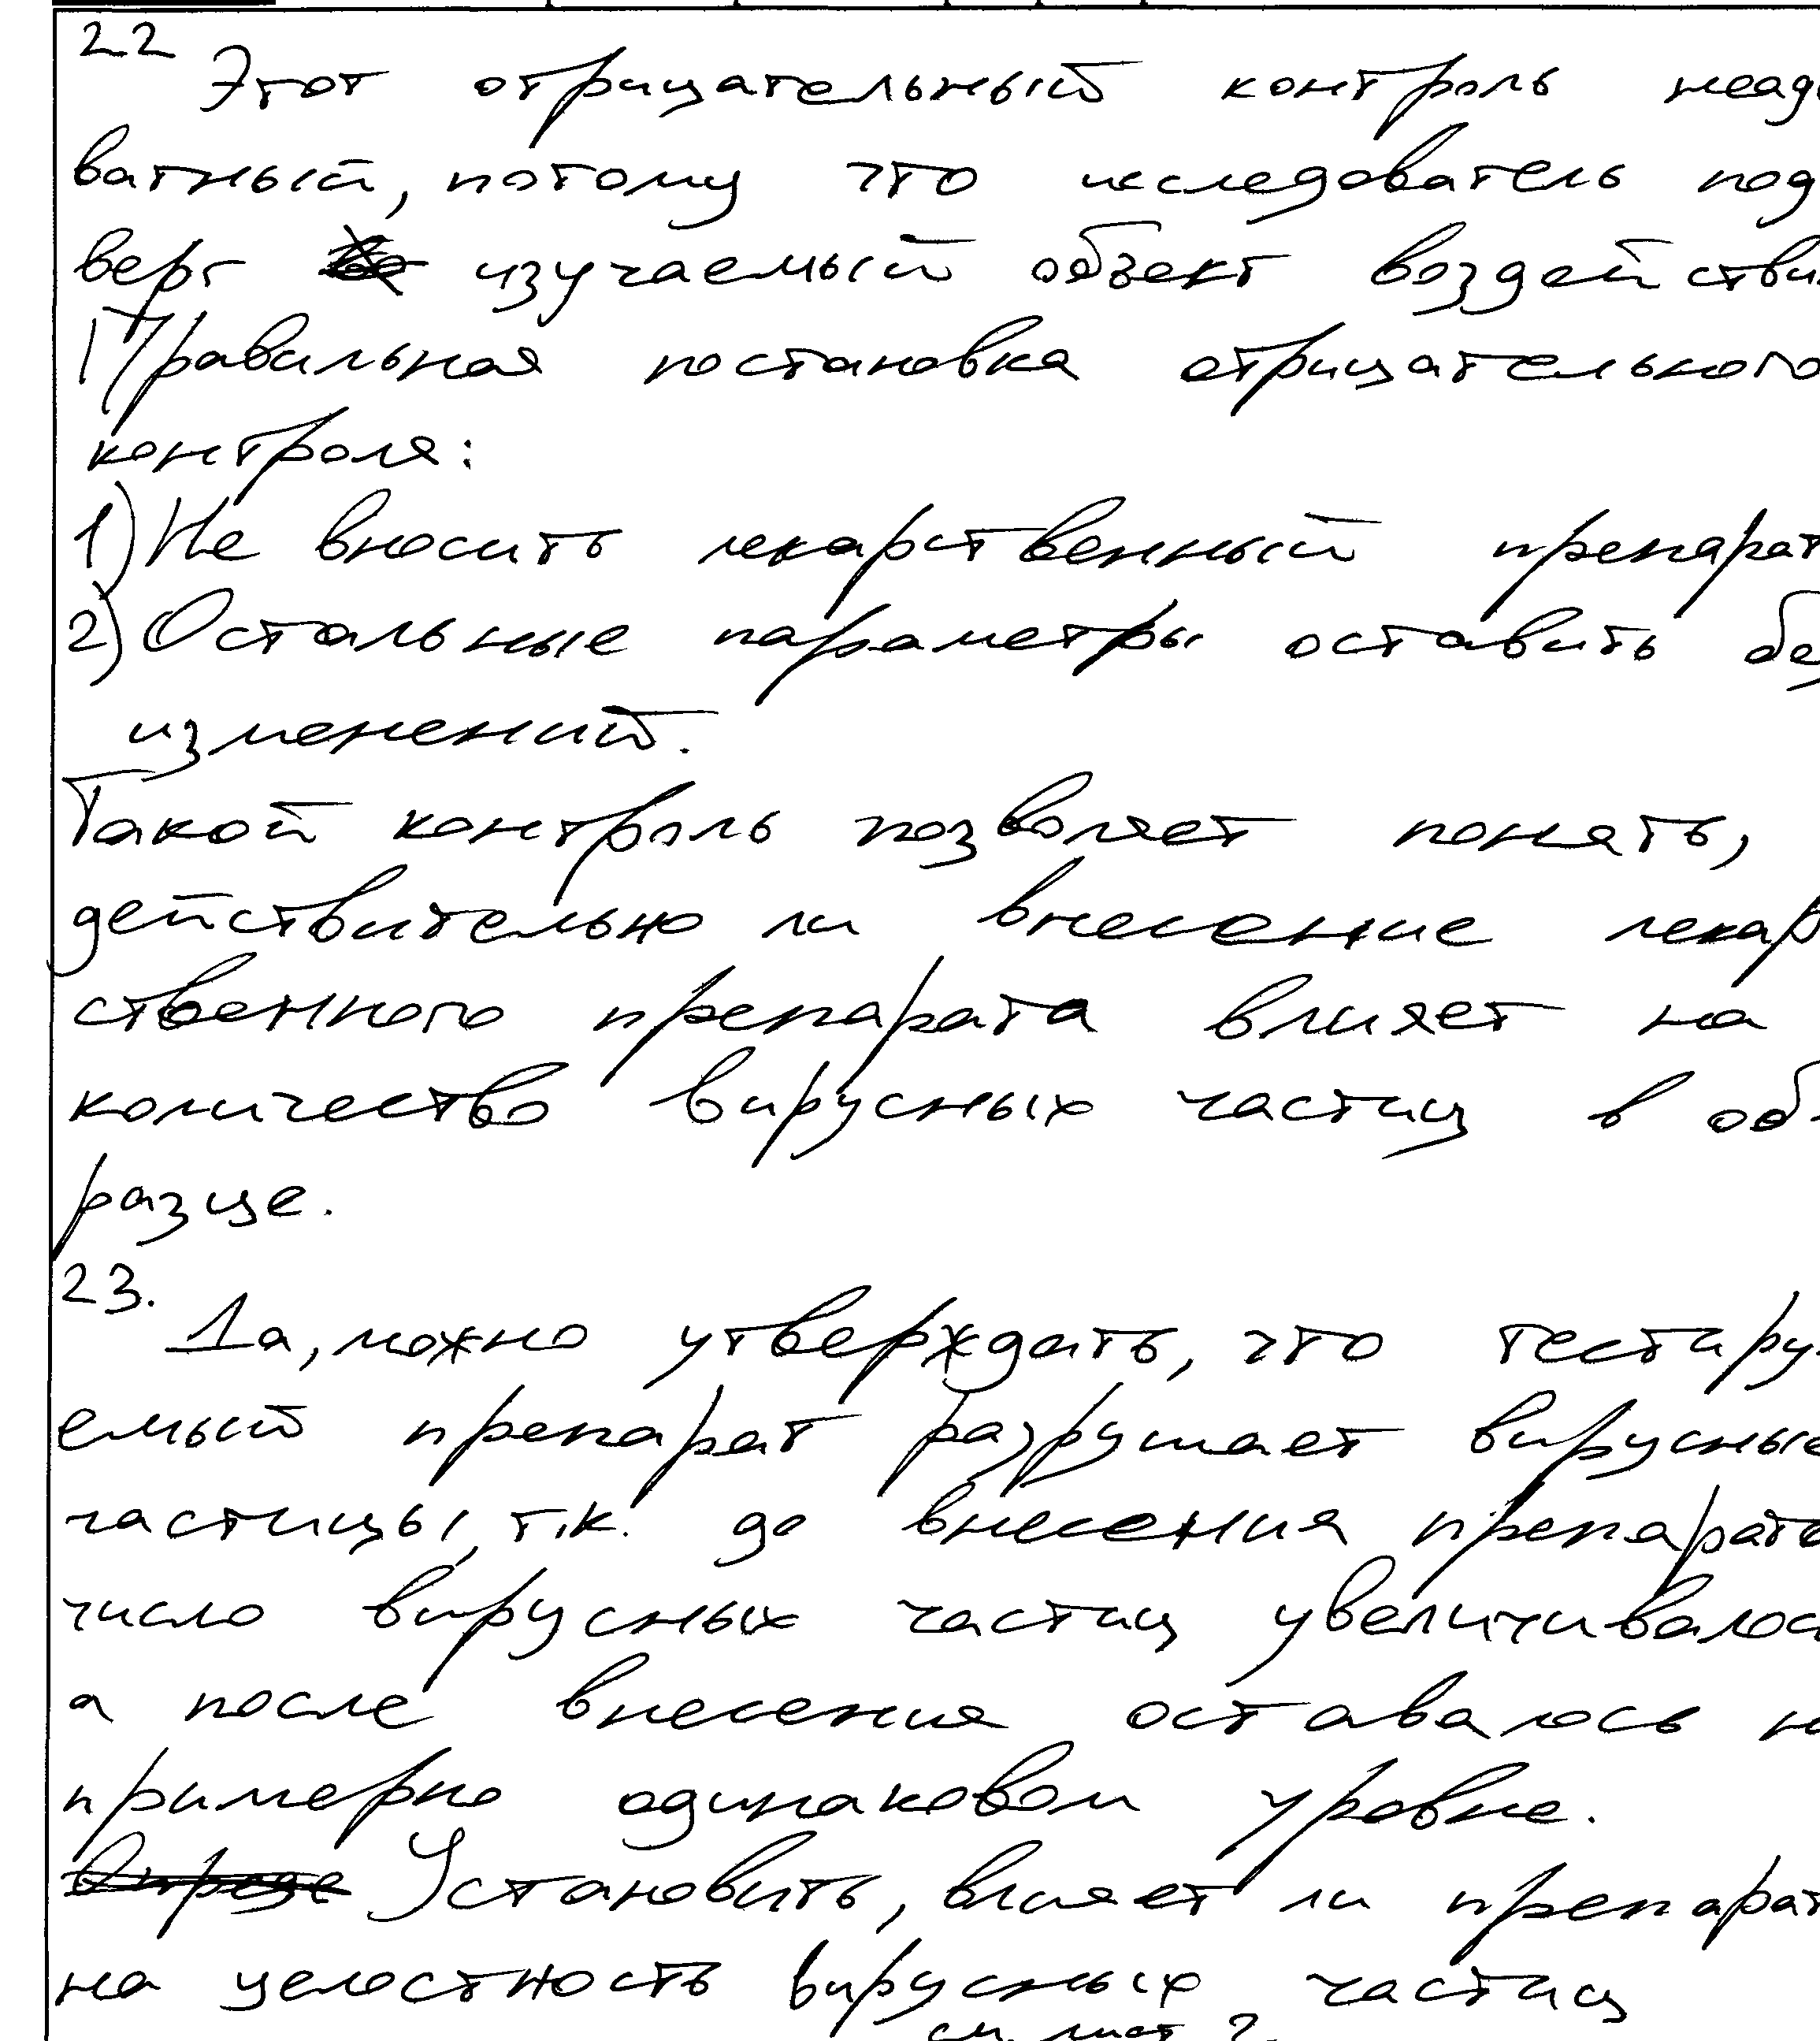 22
Этот отрицательный контроль неаде
ватный, потому что исследователь под
верг изучаемый объект воздействи
Правильная постановка отрицательного
контроля:
1) Не вносить лекарственный препарат
2) Остальные параметры оставить без
изменений.
Такой контроль позволяет понять,
действительно ли внесение лекар
ственного препарата влияет на
количество вирусных частиц в об
разце.
23.
Да, можно утверждать, что тестиру
емый препарат разрушает вирусные
частицы, т.к. до внесения препарата
число вирусных частиц увеличивалос
а после внесения оставалось н
примерно одинаковом уровне.
Установить, влияет ли препарат
на целостность вирусных частиц
см. лист 2